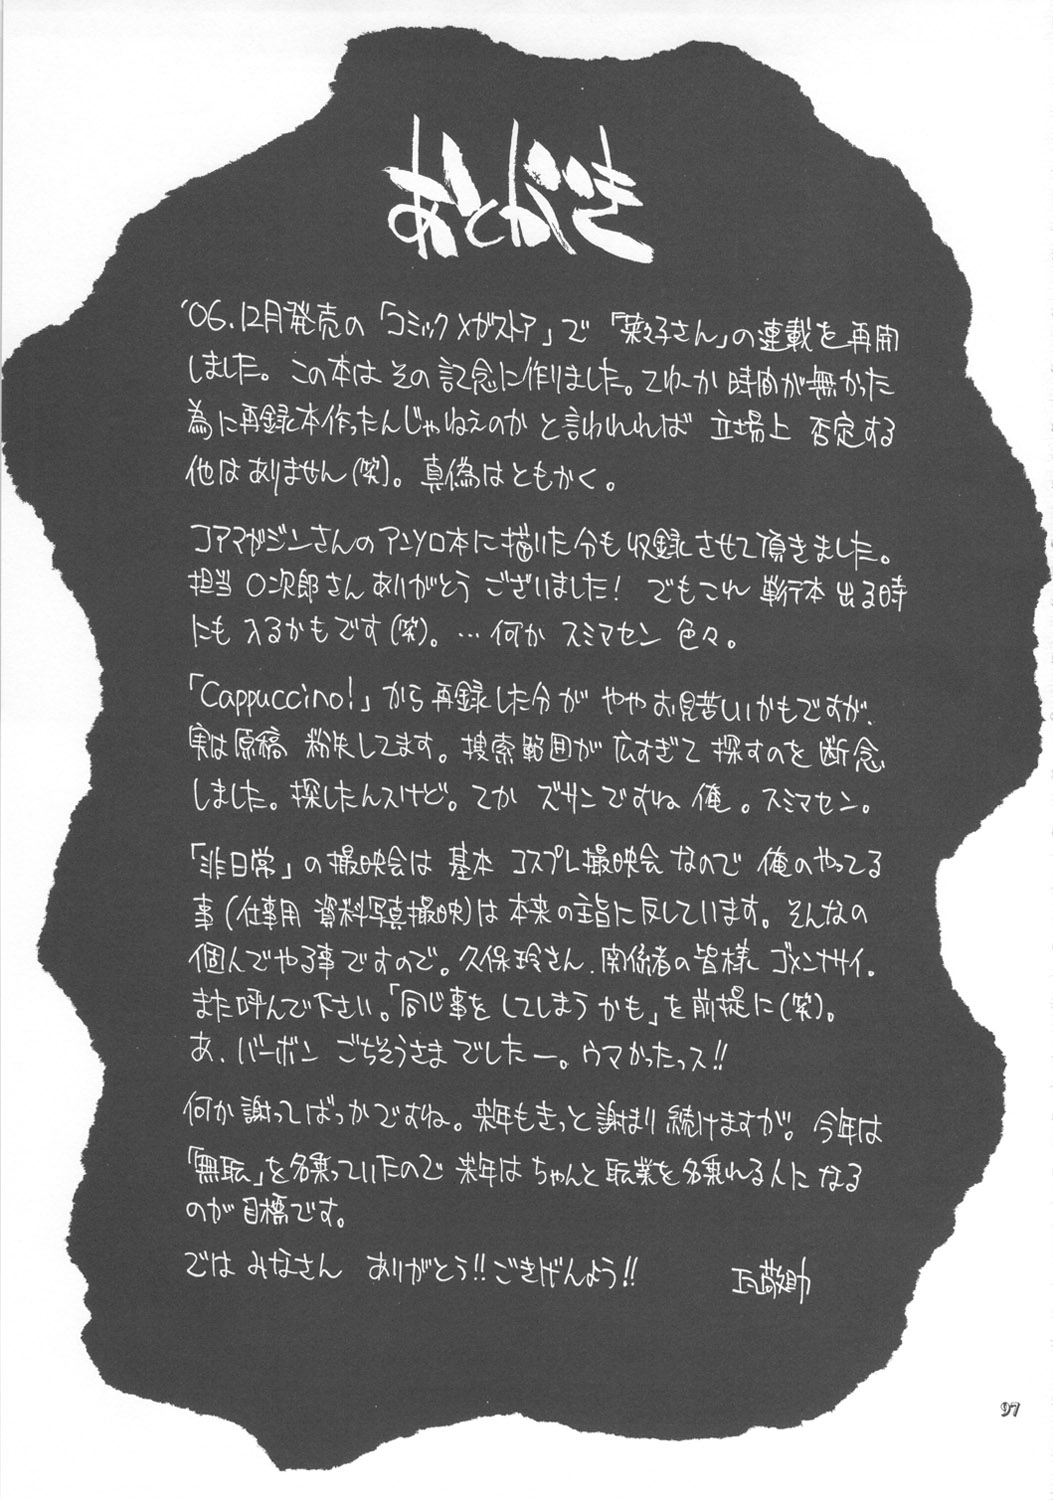 あとがき
'06.12月発売の「コミックメガストア」で「菜々子さん」の連載を再開
しました。この本はその記念に作りました。てゆーか時間が無かった
為に再録本作ったんじゃねえのかと言われれば 立場上 否定する
他はありません(笑)。真偽はともかく。
コアマガジンさんのアンソロ本に描いた分も収録させて頂きました。
担当〇次郎さんありがとうございました! でもこれ 単行本 出る時
にも入るかもです(笑)。…何か スミマセン 色々。
「Cappuccino!」から再録した分が ややお見苦しいかもですが、
実は原稿 紛失してます。捜索範囲が広すぎて探すのを断念
しました。探したんスけど。てか ズサンですね 俺。スミマセン。
「非日常」の撮映会は 基本 コスプレ撮映会なので 俺のやってる
事(仕事用 資料写真撮映)は本来の主旨に反しています。そんなの
個人でやる事ですので。久保玲さん、関係者の皆様 ゴメンナサイ。
また呼んで下さい。「同じ事をしてしまうかも」を前提に(笑)。
あ、バーボン ごちそうさまでしたー。ウマかったっス!!
何か謝ってばっかですね。来年もきっと謝まり続けますが。今年は
「無職」を名乗っていたので 来年は ちゃんと 職業を名乗れる人になる
のが目標です。
では みなさん ありがとう!! ごきげんよう!!
97